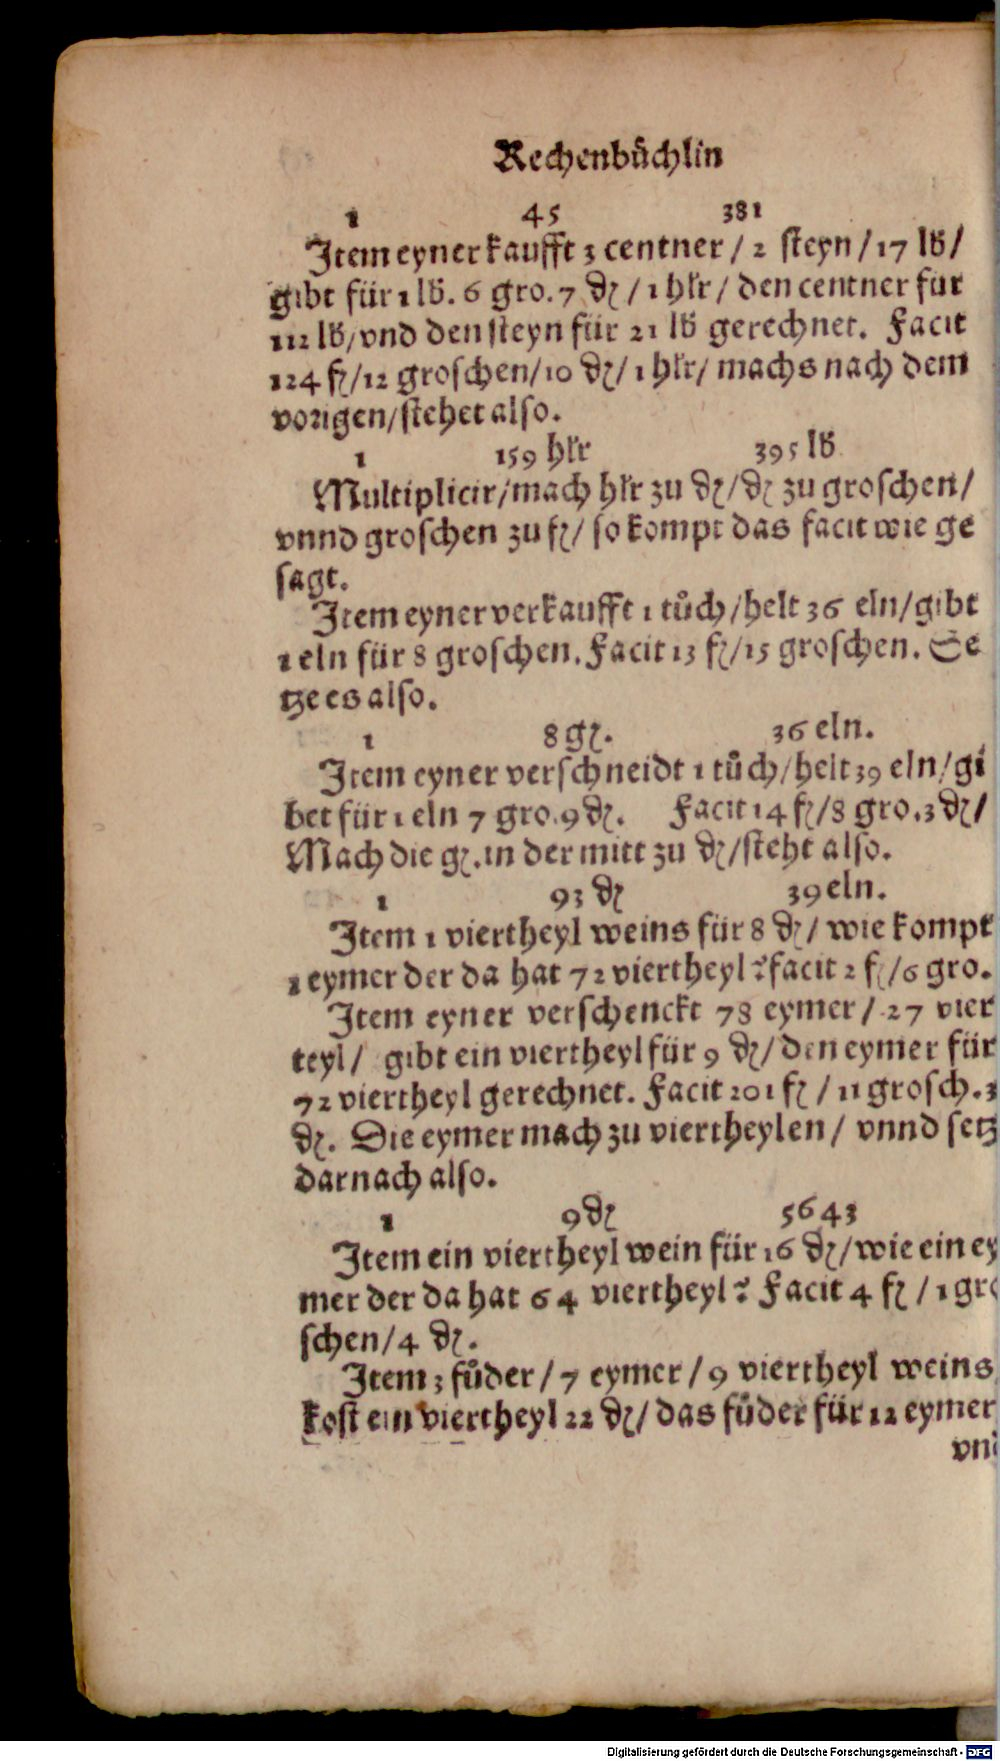 Rechenbůchlin
1 45 381
Item eyner kaufft 3 centner / 2 steyn / 17 lb /
gibt für 1 lb. 6 gro. 7 ₰ / 1 hlr / den centner für
112 lb / vnd den steyn für 21 lb gerechnet. Facit
124 fl / 12 groschen / 10 ₰ / 1 hlr / machs nach dem
vorigen / stehet also.
1 159 hlr 395 lb
Multiplicir / mach hlr zu ₰ / ₰ zu groschen /
vnnd groschen zu fl / so kompt das facit wie ge
sagt.
Item eyner verkaufft 1 tůch / helt 36 eln / gibt
1 eln für 8 groschen. Facit 13 fl / 15 groschen. Se
tze es also.
1 8 gr. 36 eln.
Item eyner verschneidt 1 tůch / helt 39 eln / gi
bet für 1 eln 7 gro. 9 ₰. Facit 14 fl / 8 gro. 3 ₰ /
Mach die gr. in der mitt zu ₰ / steht also.
1 93 ₰ 39 eln.
Item 1 viertheyl weins für 8 ₰ / wie kompt
1 eymer der da hat 72 viertheyl? facit 2 fl / 6 gro.
Item eyner verschenckt 78 eymer / 27 vier
teyl / gibt ein viertheyl für 9 ₰ / den eymer für
72 viertheyl gerechnet. Facit 201 fl / 11 grosch. 3
₰. Die eymer mach zu viertheylen / vnnd setz
darnach also.
1 9 ₰ 5643
Item ein viertheyl wein für 16 ₰ / wie ein ey
mer der da hat 64 viertheyl? Facit 4 fl / 1 gro
schen / 4 ₰.
Item 3 fůder / 7 eymer / 9 viertheyl weins
kost ein viertheyl 22 ₰ / das fůder für 12 eymer
vnd
Digitalisierung gefördert durch die Deutsche Forschungsgemeinschaft - DFG